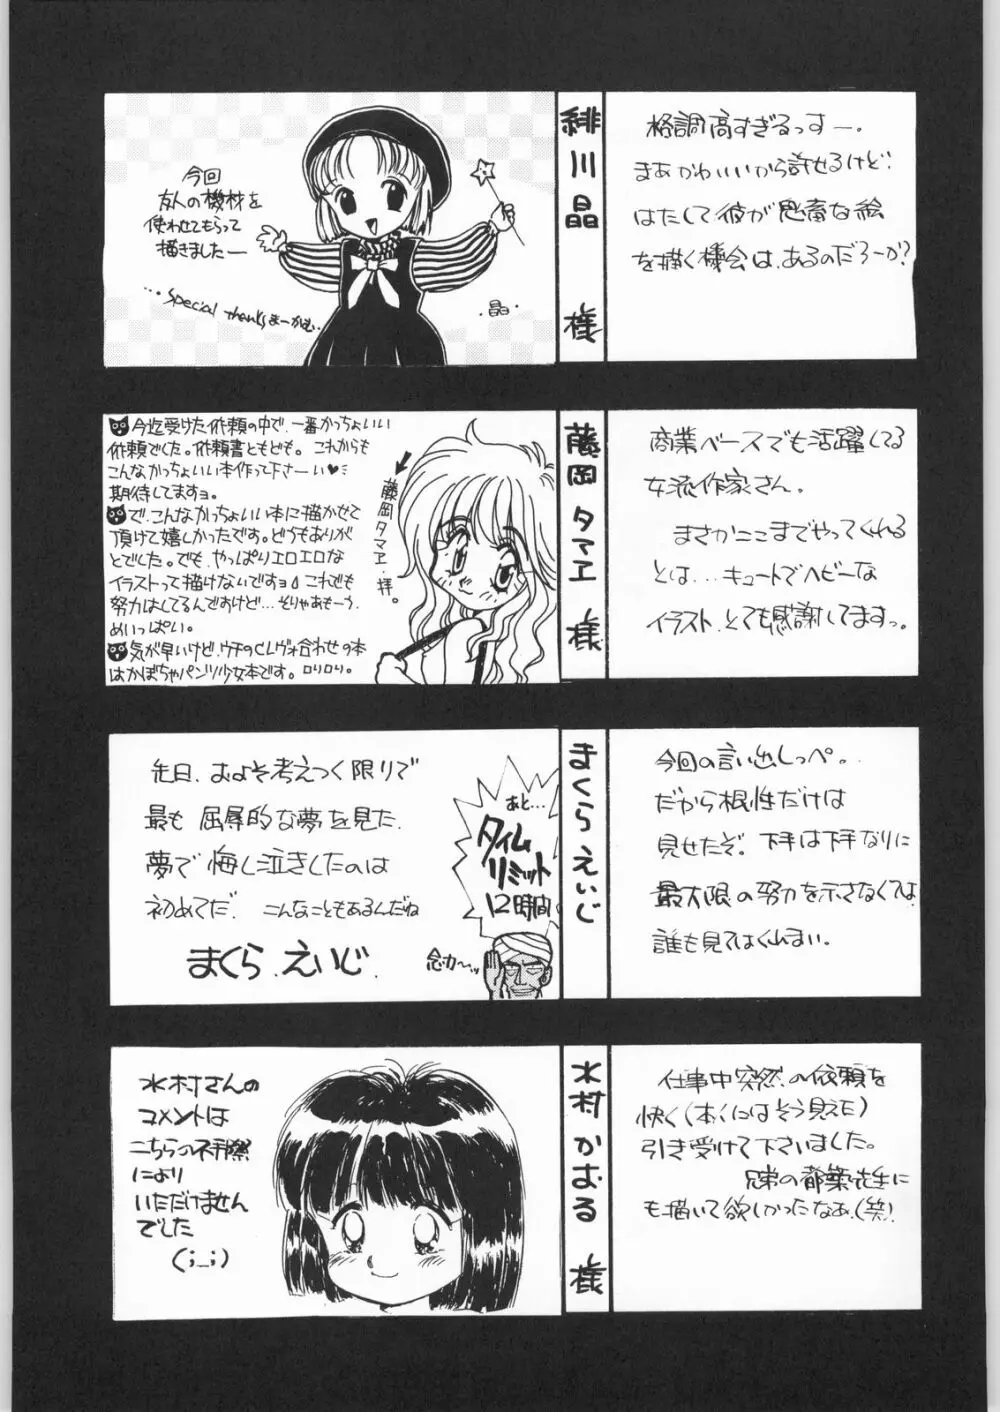 今回
友人の機材を
使わせてもらって
描きましたー
...Special thanksまーかむ.
.晶.
緋川晶 様
格調高すぎるっすー。
まあかわいいから許せるけど、
はたして彼が鬼畜な絵
を描く機会は、あるのだろーか?
今迄受けた依頼の中で、一番かっちょいい
依頼でした。依頼書ともども。これからも
こんなかっちょいい本作って下さーい♥
期待してますョ。
で、こんなかっちょいい本に描かせて
頂けて嬉しかったです。どうもありが
とでした。でも、やっぱりエロエロな
イラストって描けないですョ。これでも
努力はしてるんですけど…そりゃあもーう、
めいっぱい。
気が早いけど、ウチのCレヴォ合わせの本
はかぼちゃパンツ少女本です。ロリロリ。
藤岡タマヱ・拝。
藤岡タマヱ 様
商業ベースでも活躍してる
女流作家さん。
まさかここまでやってくれる
とは...キュートでヘビーな
イラスト、とても感謝してますっ。
先日、およそ考えつく限りで
最も屈辱的な夢を見た。
夢で悔し泣きしたのは
初めてだ。こんなこともあるんだね
まくら えいじ.
あと...
タイム
リミット
12時間
念力〜ッ
まくらえいじ
今回の言い出しっぺ。
だから根性だけは
見せたぞ。下手は下手なりに
最大限の努力を示さなくては、
誰も見てはくれまい。
水村さんの
コメントは
こちらの不手際
により
いただけません
でした
(;_;)
水村かおる 様
仕事中突然の依頼を
快く(ボくにはそう見えた)
引き受けて下さいました。
兄弟の都築先生に
も描いて欲しかったなぁ、(笑)